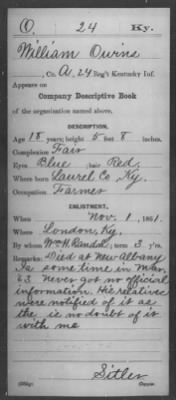 O. 24 Ky.
William Owins
, Co. A, 24 Reg't Kentucky Inf.
Appears on
Company Descriptive Book
of the organization named above.
DESCRIPTION.
Age 18 years; height 5 feet 8 inches.
Complexion Fair
Eyes Blue ; hair Red,
Where born Laurel Co, Ky.
Occupation Farmer
ENLISTMENT.
When Nov. 1, 1861.
Where London, Ky.
By whom Wm H. Randal; term 3 y'rs.
Remarks: Died at New Albany
Ia some time in Mar,
63 Never got no official
information. His relatives
were notified of it as
the is no doubt of it
with me
Sitler
Copyist.